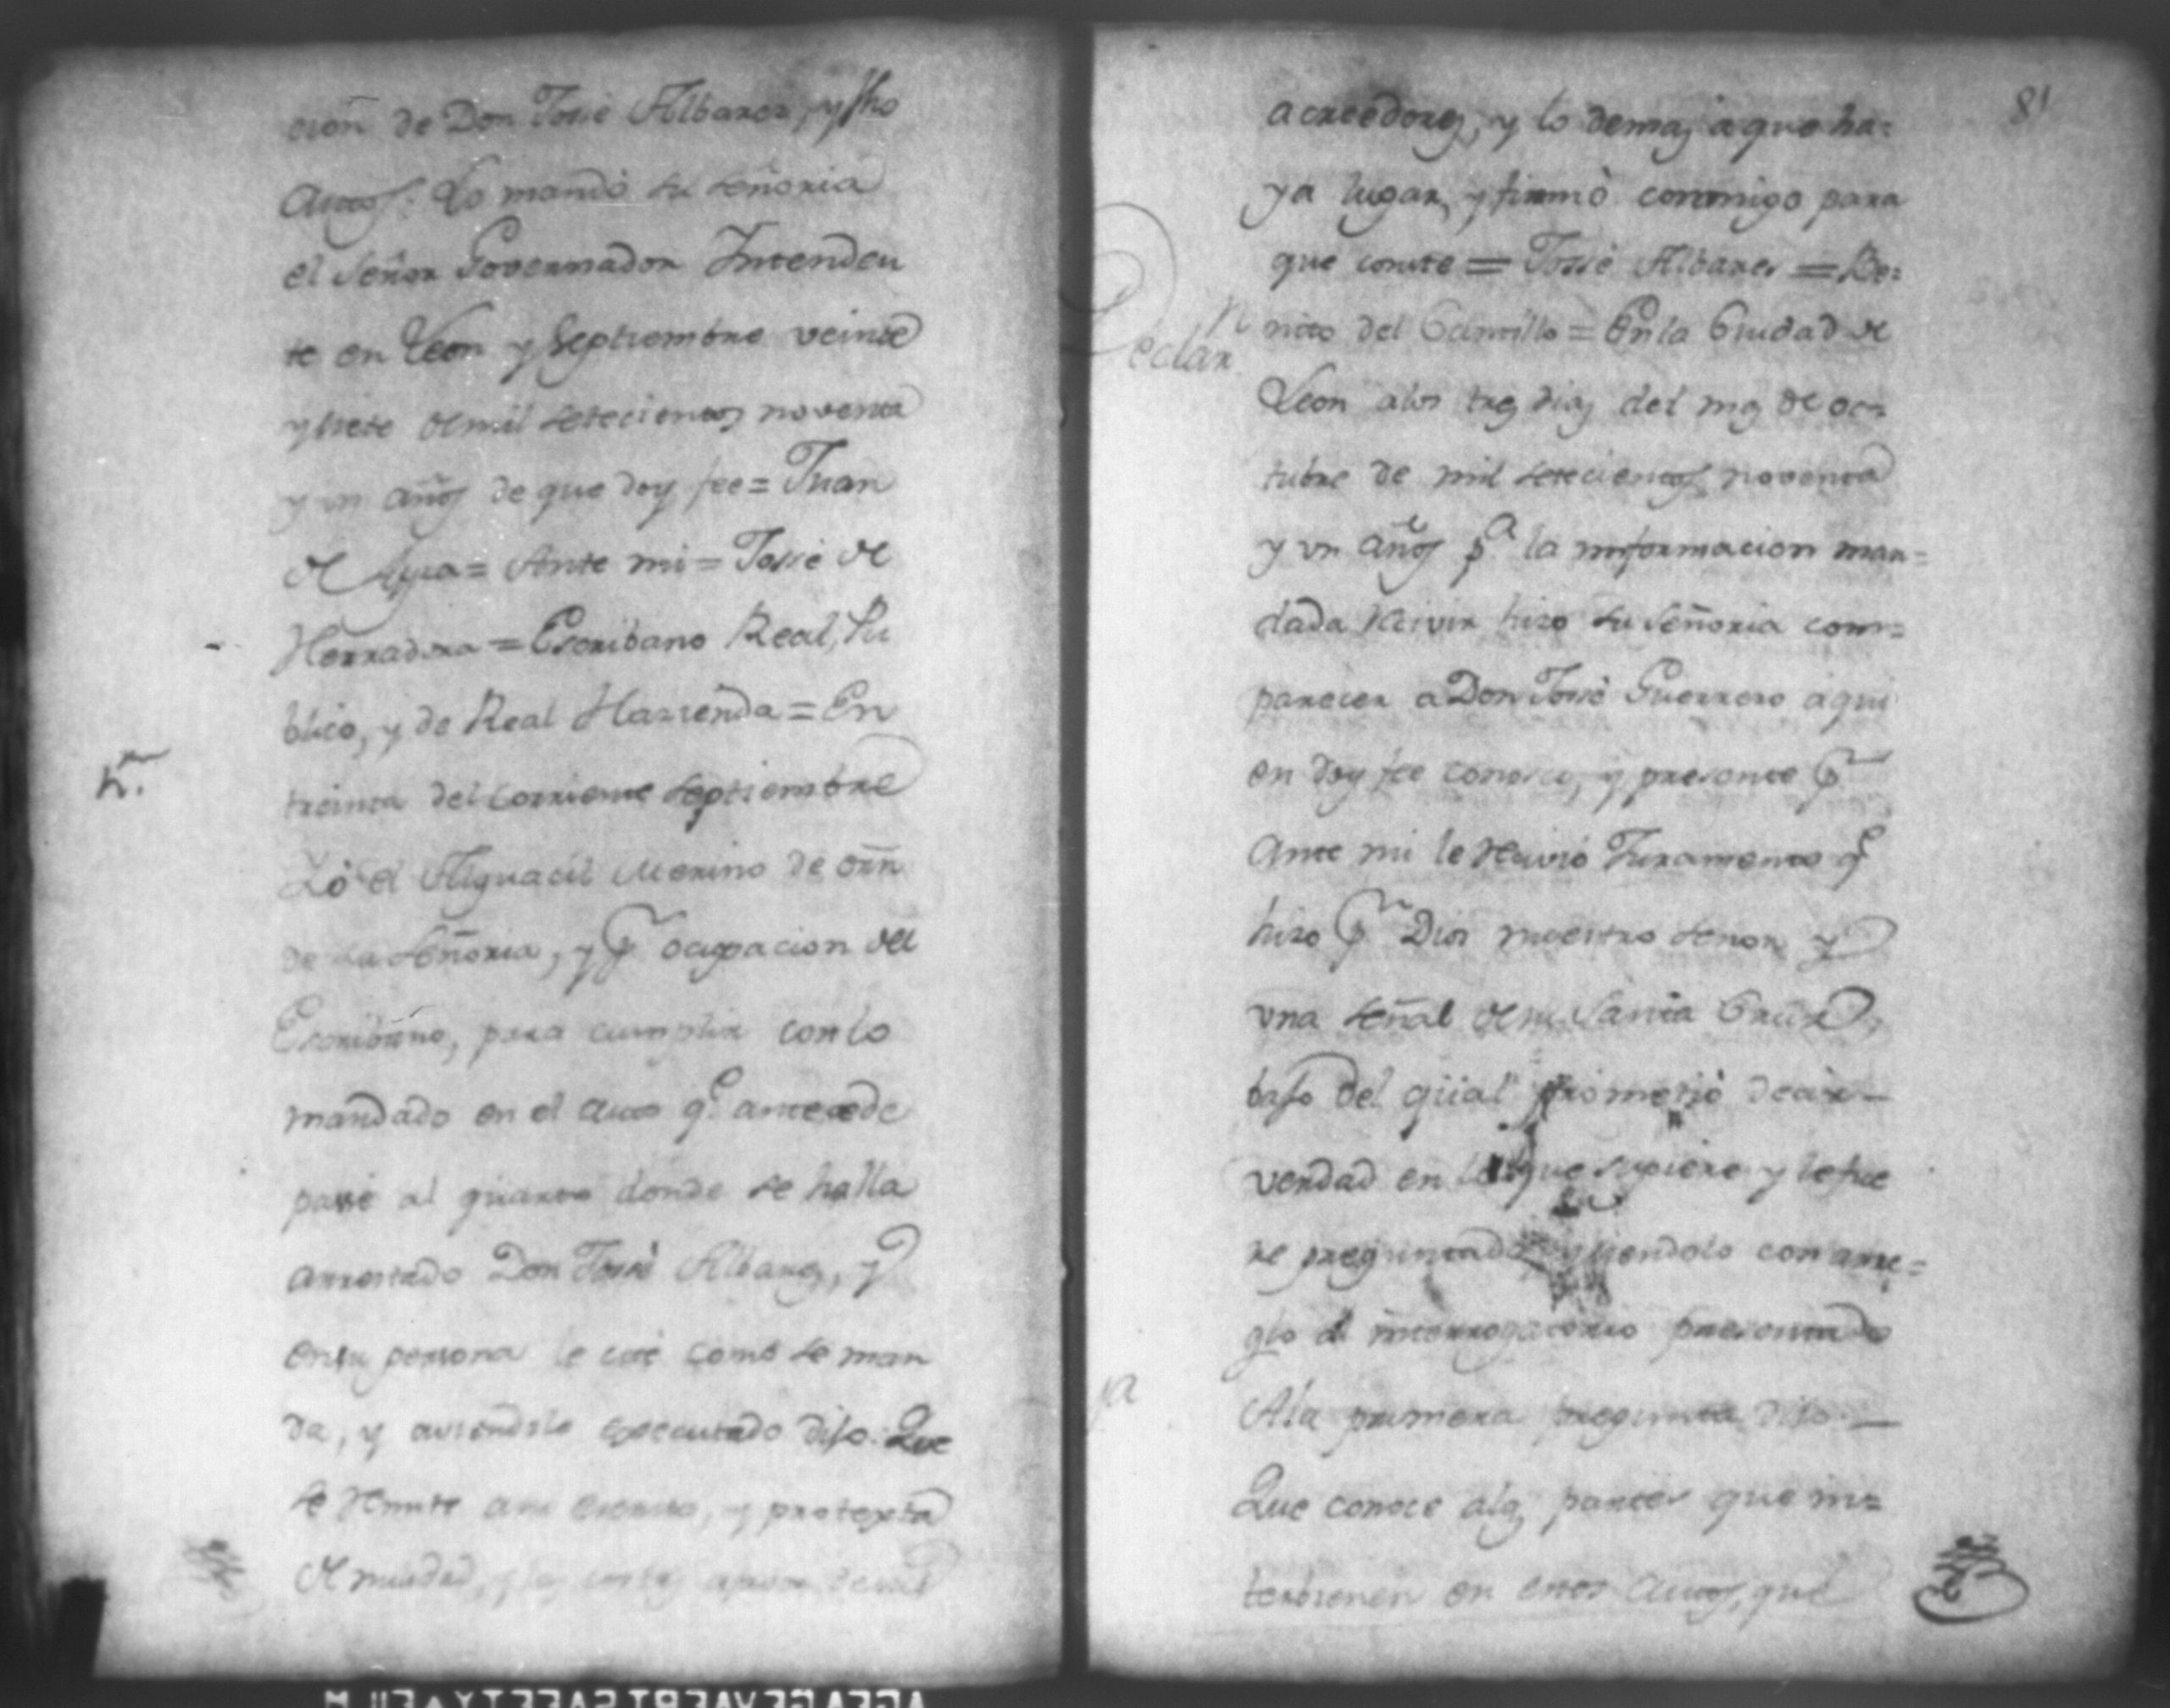 cion de Don Josse Albarez, y fho
Autos: Lo mandó su señoria
el señor Governador Intenden
te en Leon y Septiembre veinte
y siete de mil setecientos noventa
y un años de que doy fee = Juan
de Aysa = Ante mi = Josse de
Herradora = Escribano Real, Pu
blico, y de Real Hazienda = En
N.n
treinta del corriente septiembre
Yo el Alguacil Merino de orn
de su señoria, y pr ocupacion del
Escribano, para cumplir con lo
mandado en el auto q.e antecede
passé al quarto donde se halla
arrestado Don Jossé Albarez, y
en su persona le cité como se man
da, y aviendolo executado dijo: Que
se remite a su escrito, y protexta
de nulidad, y las costas
81
acreedores, y lo demas a que ha=
ya lugar, y firmó conmigo para
que conste = Jossé Albares = Be=
nito del Cantillo = En la Ciudad de
Declar.n
Leon a los tres dias del mes de oc=
tubre de mil setecientos noventa
y un años p.a la informacion man=
dada recivir hizo su señoria com=
parecer a Don Jossé Guerrero a qui
en doy fee conosco, y presente pr
Ante mi le recivió Juramento q.e
hizo pr Dios nuestro señor y
una señal de su Santa Cruz,
bajo del qüal prometió decir
verdad en lo que supiere y le fue
re preguntado y siendolo con arre=
glo al interrogatorio presentado
1a
A la primera pregunta dijo
Que conoce a las partes que in=
terbienen en estos autos, que